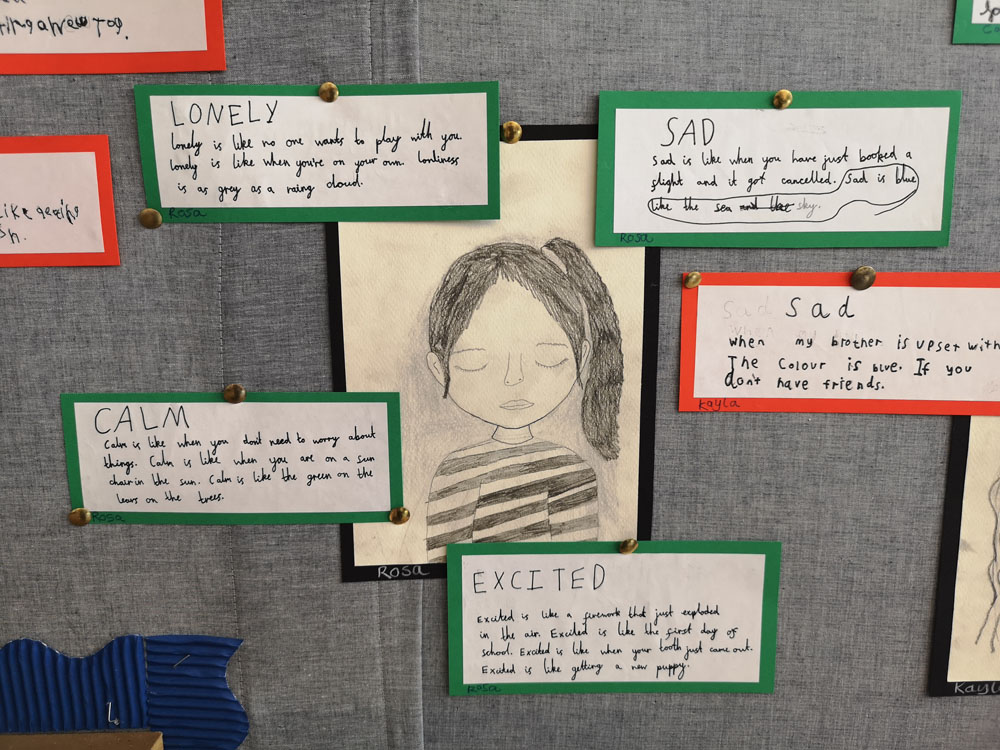 too.
LONELY
lonely is like no one wants to play with you.
lonely is like when you're on your own. lonliness
is as grey as a raing cloud.
Rosa
SAD
Sad is like when you have just booked a
flight and it got cancelled. Sad is blue
like the sea and the sky.
Rosa
like
sad sad
when my brother is upset with
The Colour is blue. If you
don't have friends.
Kayla
CALM
Calm is like when you don't need to worry about
things. Calm is like when you are on a sun
chair in the sun. Calm is like the green on the
leavs on the trees.
Rosa
Rosa
EXCITED
Excited is like a firework that just exploded
in the air. Excited is like the first day of
school. Excited is like when your tooth just came out.
Excited is like getting a new puppy.
Rosa
Kayla